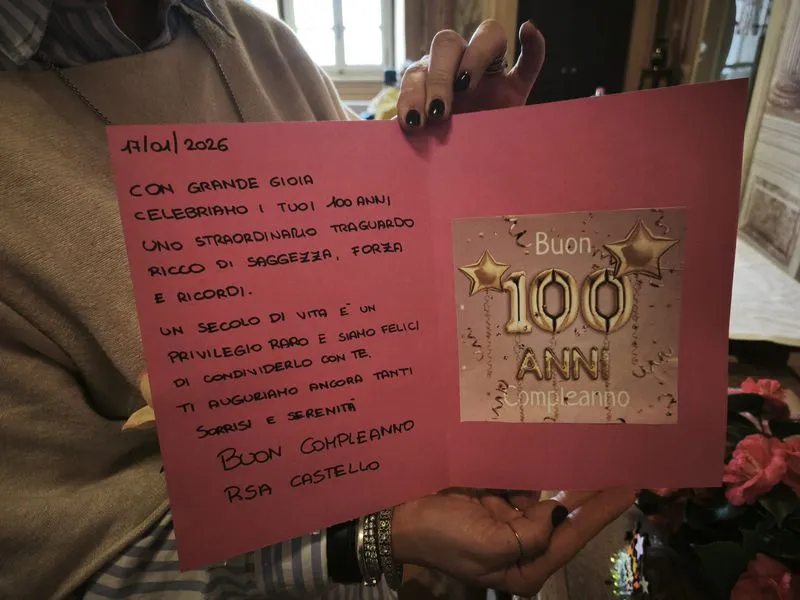 17/01/2026
CON GRANDE GIOIA
CELEBRIAMO I TUOI 100 ANNI,
UNO STRAORDINARIO TRAGUARDO
RICCO DI SAGGEZZA, FORZA
E RICORDI.
UN SECOLO DI VITA È UN
PRIVILEGIO RARO E SIAMO FELICI
DI CONDIVIDERLO CON TE.
TI AUGURIAMO ANCORA TANTI
SORRISI E SERENITÀ
BUON COMPLEANNO
RSA CASTELLO
Buon
100
ANNI
Compleanno